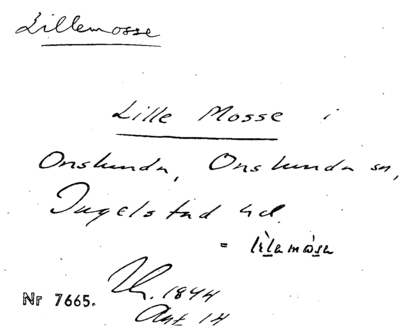 Lillemosse
Lille Mosse i
Onslunda, Onslunda sn,
Ingelstad hd.
= lìlamòsa
1844
Nr 7665.
Akt 14